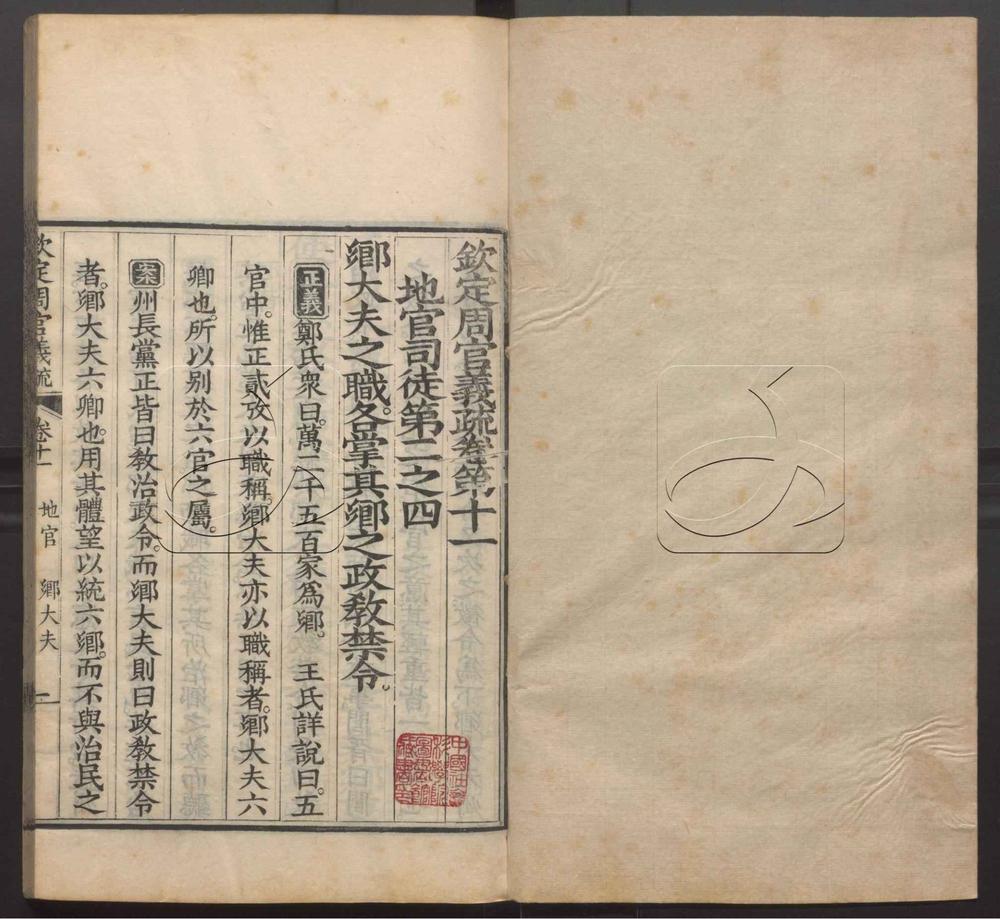 欽定周官義疏卷第十一
地官司徒第二之四
鄉大夫之職各掌其鄉之政教禁令。
正義鄭氏衆曰。萬二千五百家爲鄉。 王氏詳説曰。五
官中。惟正貳攷以職稱。鄉大夫亦以職稱者。鄉大夫六
卿也。所以别於六官之屬。
案州長黨正皆曰教治政令。而鄉大夫則曰政教禁令
者。鄉大夫六卿也。用其體望以統六鄉。而不與治民之
欽定周官義疏 卷十一 地官 鄉大夫 一